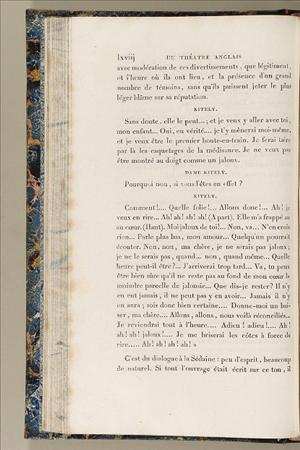 lxviij DU THÉATRE ANGLAIS
avec modération de ces divertissements, que légitiment,
et l'heure où ils ont lieu, et la présence d'un grand
nombre de témoins, sans qu'ils puissent jeter le plus
léger blâme sur sa réputation.
KITELY.
Sans doute, elle le peut...; et je veux y aller avec toi,
mon enfant... Oui, en vérité.... je t'y mènerai moi-même,
et je veux être le premier boute-en-train. Je ferai taire
par là les caquetages de la médisance. Je ne veux pas
être montré au doigt comme un jaloux.
DAME KITELY.
Pourquoi non, si vous l'êtes en effet ?
KITELY.
Comment!.... Quelle folie!... Allons donc!... Ah! je
veux en rire... Ah! ah! ah! ah! (A part). Elle m'a frappé au
cœur. (Haut). Moi jaloux de toi!... Non, va... N'en crois
rien... Parle plus bas, mon amour... Quelqu'un pourrait
écouter. Non, non, ma chère, je ne serais pas jaloux;
je ne le serais pas, quand... non, quand même... Quelle
heure peut-il être?... J'arriverai trop tard... Va, tu peux
être bien sûre qu'il ne reste pas au fond de mon cœur la
moindre parcelle de jalousie... Que dis-je rester? Il n'y
en eut jamais, il ne peut pas y en avoir... Jamais il n'y
en aura; sois donc bien certaine.... Donne-moi un bai-
ser, ma chère.... Allons, allons, nous voilà réconciliés...
Je reviendrai tout à l'heure.... Adieu! adieu!.... Ah!
ah! ah! jaloux!.... Je me briserai les côtes à force de
rire..... Ah! ah! ah! ah! »
C'est du dialogue à la Sédaine : peu d'esprit, beaucoup
de naturel. Si tout l'ouvrage était écrit sur ce ton, il